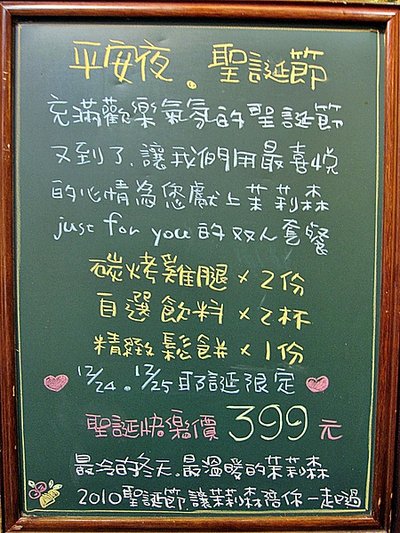 平安夜.聖誕節
充滿歡樂氣氛的聖誕節
又到了,讓我們用最喜悅
的心情為您獻上茉莉森
just for you的双人套餐
碳烤雞腿×2份
自選飲料×2杯
精緻鬆餅×1份
12/24.12/25耶誕限定
聖誕快樂價399元
最冷的冬天.最溫暖的茉莉森
2010聖誕節,讓茉莉森陪你一起過